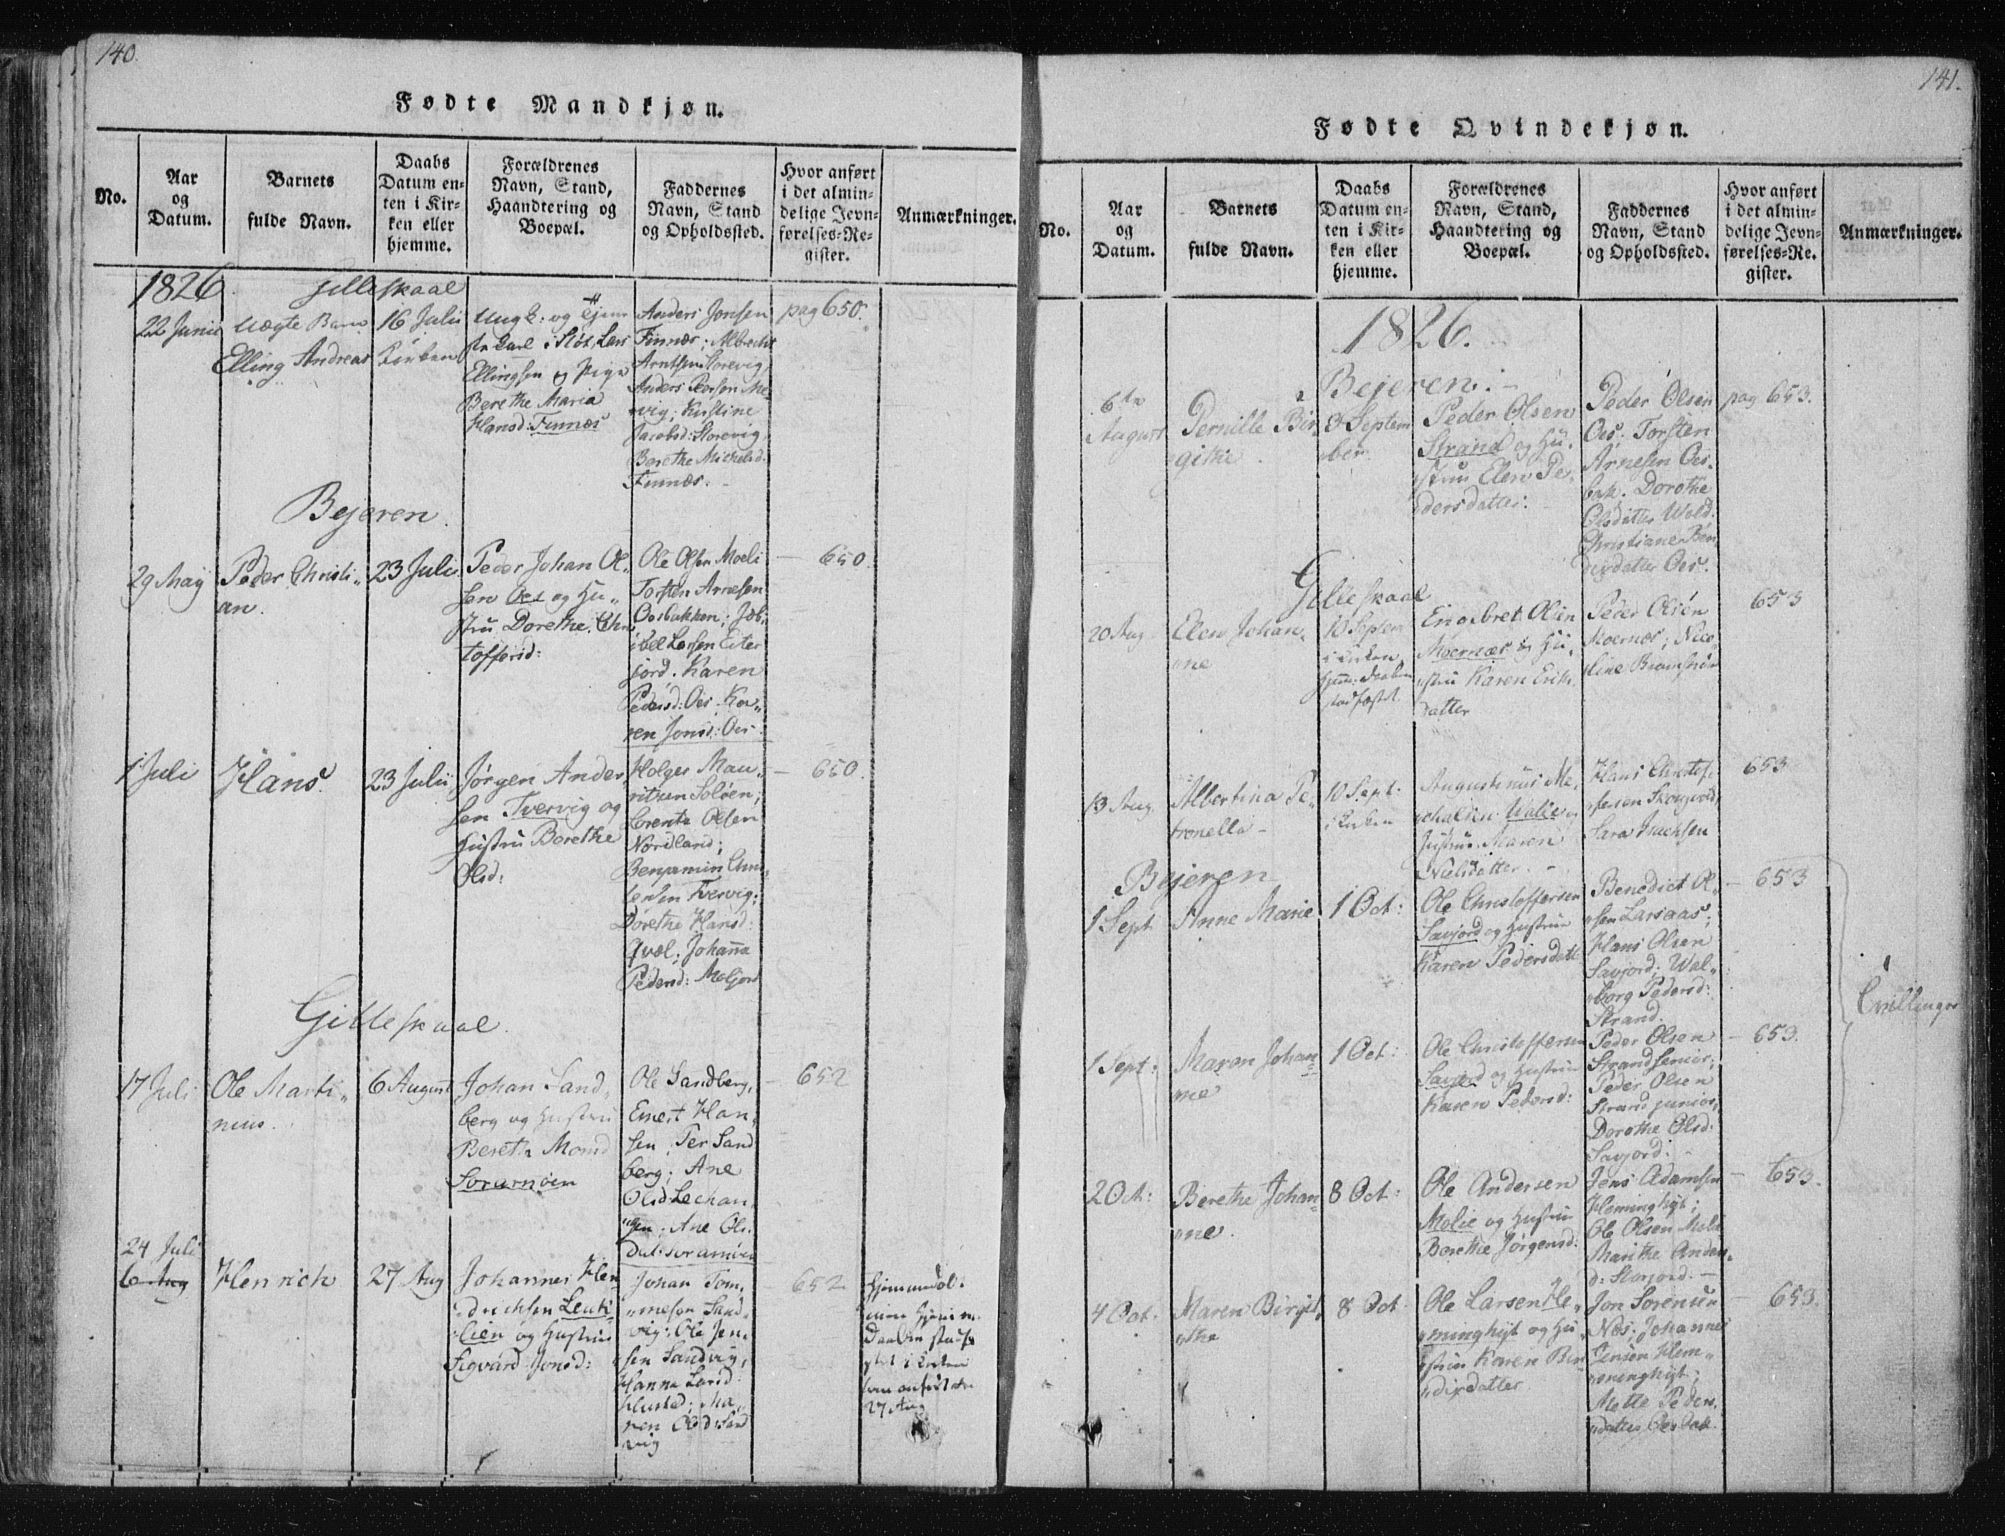 140.
Fødte Mandkjøn.
No.
Aar
og
Datum.
Barnets
fulde Navn.
Daabs
Datum en-
ten i Kir-
ken eller
hjemme.
Forældrenes
Navn, Stand,
Haandtering og
Boepæl.
Faddernes
Navn, Stand
og Opholdssted.
Hvor anført
i det almin-
delige Jevn-
førelses-Re-
gister.
Anmærkninger.
1826.
Gilleskaal
22 Junii
Uægte Barn
Elling Andreas
16 Julii
Kirken
Ungk: og
Ellingsen og Pige
Berethe Maria
Hansd: Finnæs
Anders Jonsen
Finnæs; Albrecht
Arntsen Storevig,
vig; Kirstine
Jacobsd: Storevig
Berethe Michelsd.
Finnæs.
pag 650.
Bejeren.
29 May
Peder Christi-
an.
23 Juli
Peder Johan Ol-
sen Oes og Hu-
stru Dorethe
toffersd:
Ole Olsen Moeli
Torsten Arnesen
Oesbakken;
Larsen Eiter
jord. Karen
Pedersd: Oes. Ka-
ren Jonsd: Oes:
- 650.
1 Juli
Hans.
23 Julii
Jørgen Ander
sen Tvervig og
Hustru Berethe
Olsd:
Holger Mau-
ritzen Soløen;
Lorentz Olsen
Nordland;
Benjamin
Tvervig;
Dorethe Hansd:
Qvæl; Johanna
Pedersd: Meljord
- 650.
Gilleskaal.
17 Juli
Ole Marti-
nius.
6 August
Johan Sand-
berg og Hustru
Bereth Monsd
Sørarnøen
Ole Sandberg,
Ernst Han-
sen; Per Sand
berg; Ane
Olsd
Ane Ols
- 652
24 Juli
6 Aug
Henrich
27 Aug
Johannes Hen
drichsen
lien og Hustrue
Sigvard Jonsd:
Johan Tom-
mesen Sand-
vig; Ole Jen-
sen Sandvig,
Hanna Larsd
Ma-
ren Olsd: Sand
vig
- 652
Hjemmedøbt
27 Aug
141.
Fødte Qvindekjøn.
No.
Aar
og
Datum.
Barnets
fulde Navn.
Daabs
Datum en-
ten i Kir-
ken eller
hjemme.
Forældrenes
Navn, Stand,
Haandtering og
Boepæl.
Faddernes
Navn, Stand
og Opholdssted.
Hvor anført
i det almin-
delige Jevn-
førelses-Re-
gister.
Anmærkninger.
1826.
Bejeren.
6te
August
Pernille Bir-
githe
3 Septem
ber
Peder Olsen
Strand og Hu-
stru Elen Pe-
dersdatter:
Peder Olsen
Oes; Torsten
Arnesen Oes-
bak. Dorothe
Olsdatter
Christiane Ben
datter Oes.
pag 653.
Gilleskaal
20 Aug
Elen Johan-
ne
10 Septem
i Kirken
Engebret Olsen
Moernæs og Hu-
stru Karen Erik
datter
Peder Olsen
Moernæs; Nico
line
653
13 Aug.
Albertina Pe-
tronella -
10 Sept:
i Kirken
Augustinus
Hustrue Maren
Nielsdatter. -
Hans Christof-
fersen
Sara Isachsen
653
Bejeren
1 Sept
Anne Marie
1 Oct:
Ole Christoffersen
Savjord og Hustrue
Karen Pedersdatt
Benedict Ol-
sen Larsaas;
Hans Olsen
Savjord; Wal-
borg Pedersd:
Strand.
- 653
Tvillinger
1 Sept:
Maren Johan-
ne
1 Oct:
Ole Christoffersen
Savjord og Hustrue
Karen Pedersd:
Peder Olsen
Strand Senior;
Peder Olsen
Strand junior,
Dorothe Olsd:
Savjord:
- 653.
2 Oct:
Berethe Johan-
ne.
8 Oct:
Ole Andersen
Molie og Hustrue
Berethe Jørgensd:
Jens Adamsen
Heminghÿt;
Ole Olsen
Marithe Anders
d: Storjord. -
- 653.
4 Oct.
Maren Birgit-
the
8 Oct
Ole Larsen He-
minghÿt og Hu-
strue Karen Ben
dixdatter
Jon Sørensen
Nes; Johannes
Jensen Hem-
meninghÿt;
Mette Peders-
datter Oesbak.
- 653.